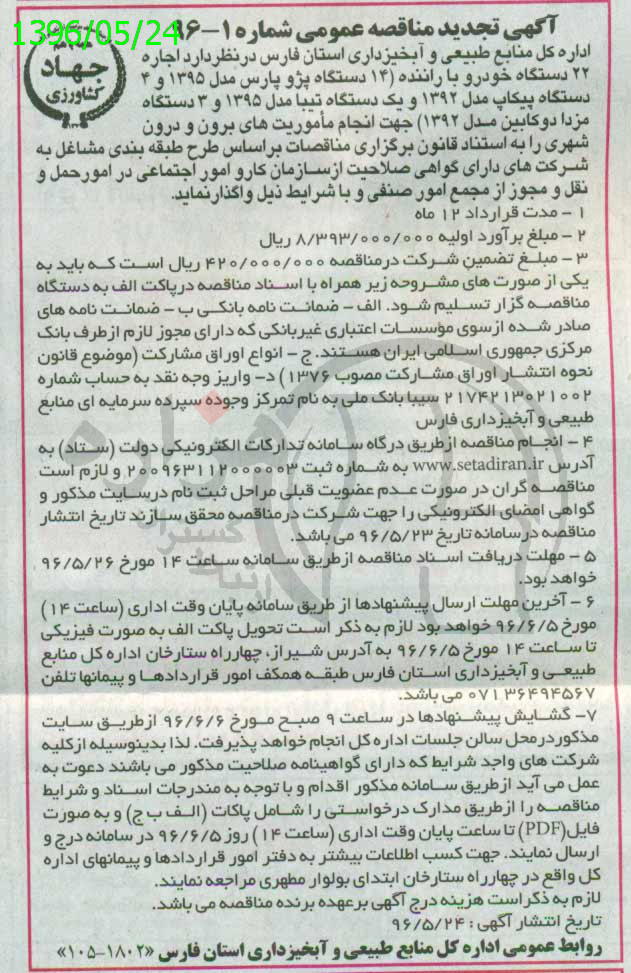 1396/05/24
آگهی تجدید مناقصه عمومی شماره ۱-۹۶
جهاد
کشاورزی
اداره کل منابع طبیعی و آبخیزداری استان فارس درنظردارد اجاره
۲۲ دستگاه خودرو با راننده (۱۴ دستگاه پژو پارس مدل ۱۳۹۵ و ۴
دستگاه پیکاپ مدل ۱۳۹۲ و یک دستگاه تیبا مدل ۱۳۹۵ و ۳ دستگاه
مزدا دوکابین مدل ۱۳۹۲) جهت انجام مأموریت های برون و درون
شهری را به استناد قانون برگزاری مناقصات براساس طرح طبقه بندی مشاغل به
شرکت های دارای گواهی صلاحیت ازسازمان کارو امور اجتماعی در امورحمل و
نقل و مجوز از مجمع امور صنفی و با شرایط ذیل واگذارنماید.
۱ - مدت قرارداد ۱۲ ماه
۲ - مبلغ برآورد اولیه ۸/۳۹۳/۰۰۰/۰۰۰ ریال
۳ - مبلغ تضمین شرکت درمناقصه ۴۲۰/۰۰۰/۰۰۰ ریال است که باید به
یکی از صورت های مشروحه زیر همراه با اسناد مناقصه درپاکت الف به دستگاه
مناقصه گزار تسلیم شود. الف - ضمانت نامه بانکی ب - ضمانت نامه های
صادر شده ازسوی مؤسسات اعتباری غیربانکی که دارای مجوز لازم ازطرف بانک
مرکزی جمهوری اسلامی ایران هستند. ج - انواع اوراق مشارکت (موضوع قانون
نحوه انتشار اوراق مشارکت مصوب ۱۳۷۶) د- واریز وجه نقد به حساب شماره
۲۱۷۴۲۱۳۰۲۱۰۰۲ سیبا بانک ملی به نام تمرکز وجوده سپرده سرمایه ای منابع
طبیعی و آبخیزداری فارس
۴ - انجام مناقصه ازطریق درگاه سامانه تدارکات الکترونیکی دولت (ستاد) به
آدرس www.setadiran.ir به شماره ثبت ۲۰۰۹۶۳۱۱۲۰۰۰۰۰۳ و لازم است
مناقصه گران در صورت عدم عضویت قبلی مراحل ثبت نام درسایت مذکور و
گواهی امضای الکترونیکی را جهت شرکت درمناقصه محقق سازند تاریخ انتشار
مناقصه درسامانه تاریخ ۹۶/۵/۲۳ می باشد.
۵ - مهلت دریافت اسناد مناقصه ازطریق سامانه ساعت ۱۴ مورخ ۹۶/۵/۲۶
خواهد بود.
۶ - آخرین مهلت ارسال پیشنهادها از طریق سامانه پایان وقت اداری (ساعت ۱۴)
مورخ ۹۶/۶/۵ خواهد بود لازم به ذکر است تحویل پاکت الف به صورت فیزیکی
تا ساعت ۱۴ مورخ ۹۶/۶/۵ به آدرس شیراز، چهارراه ستارخان اداره کل منابع
طبیعی و آبخیزداری استان فارس طبقه همکف امور قراردادها و پیمانها تلفن
۰۷۱۳۶۴۹۴۵۶۷ می باشد.
۷- گشایش پیشنهادها در ساعت ۹ صبح مورخ ۹۶/۶/۶ ازطریق سایت
مذکوردرمحل سالن جلسات اداره کل انجام خواهد پذیرفت. لذا بدینوسیله ازکلیه
شرکت های واجد شرایط که دارای گواهینامه صلاحیت مذکور می باشند دعوت به
عمل می آید ازطریق سامانه مذکور اقدام و با توجه به مندرجات اسناد و شرایط
مناقصه را ازطریق مدارک درخواستی را شامل پاکات (الف ب ج) و به صورت
فایل(PDF) تا ساعت پایان وقت اداری (ساعت ۱۴) روز ۹۶/۶/۵ در سامانه درج و
ارسال نمایند. جهت کسب اطلاعات بیشتر به دفتر امور قراردادها و پیمانهای اداره
کل واقع در چهارراه ستارخان ابتدای بولوار مطهری مراجعه نمایند.
لازم به ذکراست هزینه درج آگهی برعهده برنده مناقصه می باشد.
تاریخ انتشار آگهی : ۹۶/۵/۲۴
روابط عمومی اداره کل منابع طبیعی و آبخیزداری استان فارس «۱۸۰۲-۱۰۵»